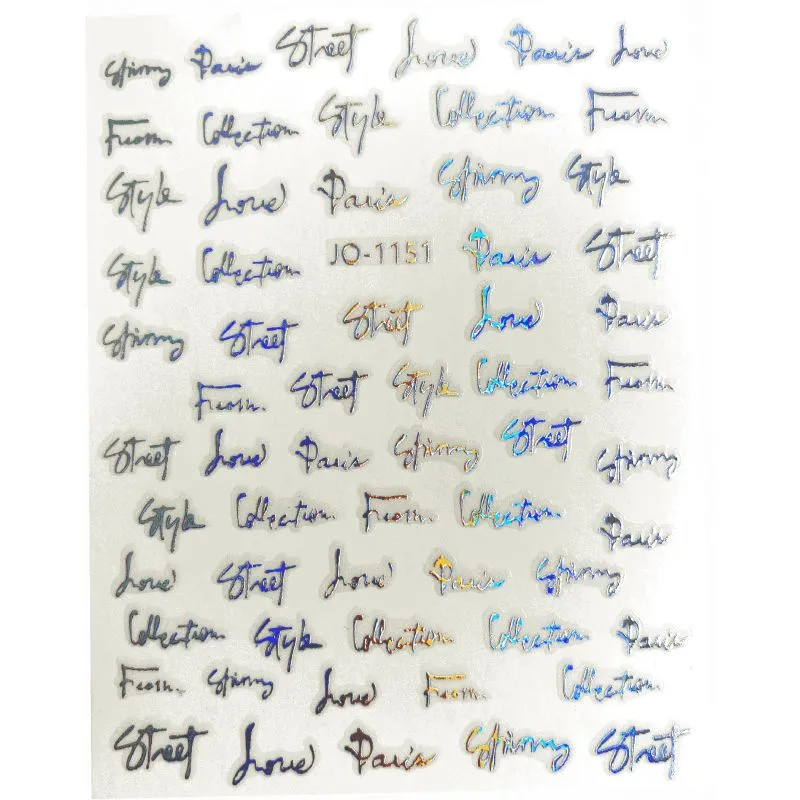 Spinny Paris Street Love Paris Love
From Collection Style Collection From
Style Love Paris Spinny Style
Style Collection JO-1151 Paris Street
Spinny Street Street Love Paris
From Street Style Collection From
Street Love Paris Spinny Street Spinny
Style Collection From Collection Paris
Love Street Love Paris Spinny
Collection Style Collection Collection Paris
From Spinny Love From Collection
Street Love Paris Spinny Street